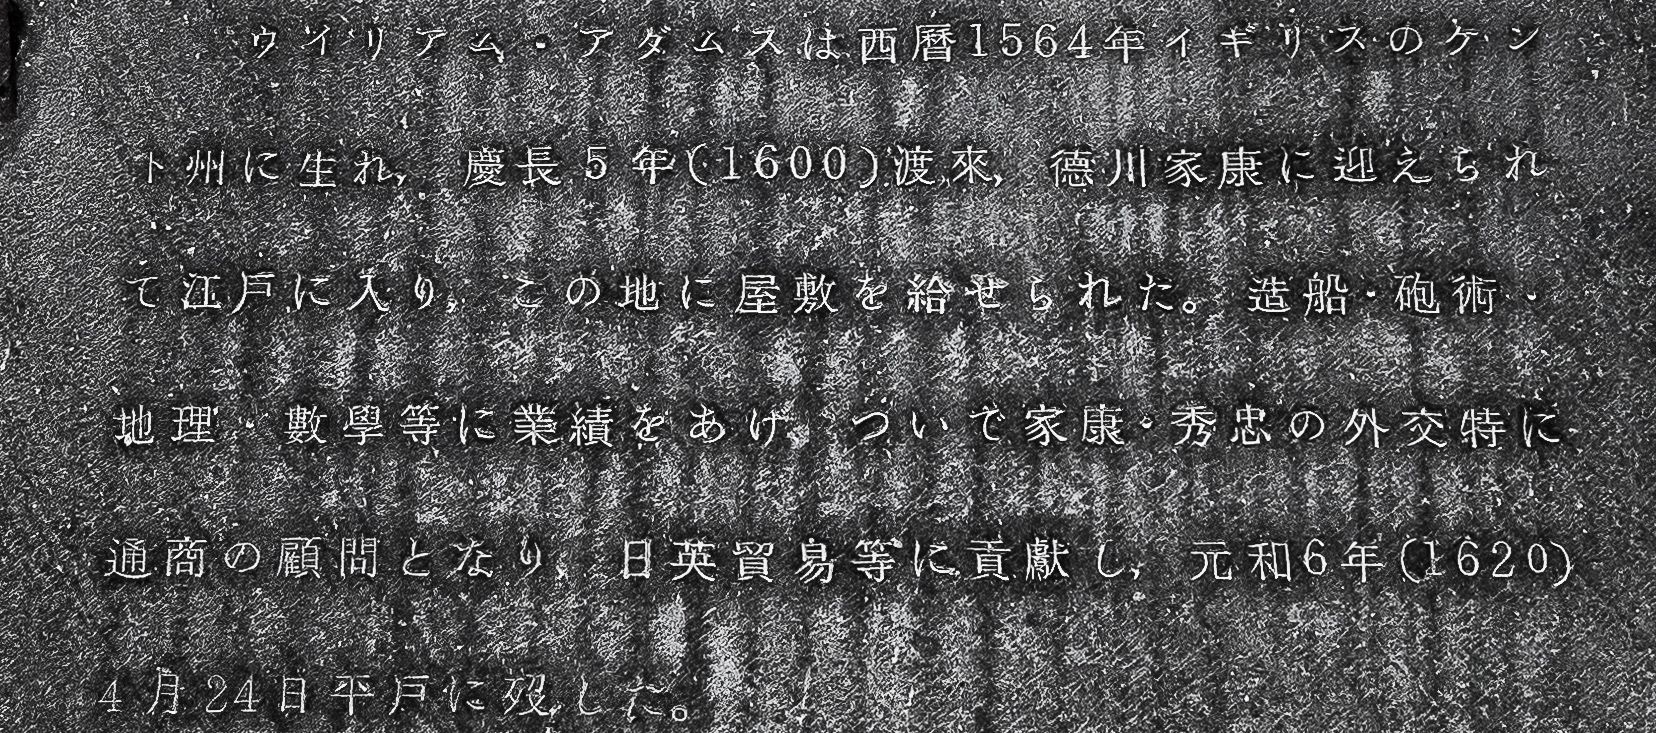 ウイリアム・アダムスは西暦1564年イギリスのケン
ト州に生れ,慶長5年(1600)渡來,德川家康に迎えられ
て江戸に入り,この地に屋敷を給せられた。造船・砲術・
地理・數學等に業績をあげ,ついで家康・秀忠の外交特に
通商の顧問となり,日英貿易等に貢獻し,元和6年(1620)
4月24日平戸に歿した。